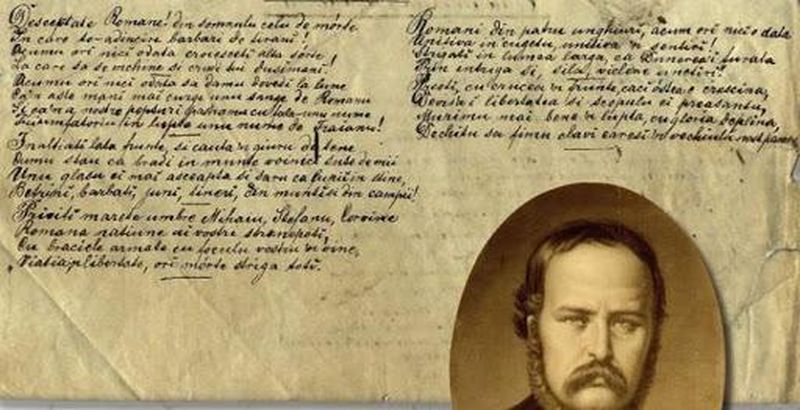 Desceptate Romane! din somnulu celu de mórte
In care te-adincire barbari de tirani!
Acumu ori nici odata croiesciti alta sórte
La care sa se inchine si crudii tei dusimani!
Acumu ori nici odata sa damu dovesi la lume
Ca'n aste mani mai curge unu sange de Romanu
Si ca'n a nostre pepturi pastramu cu fala unu nume
Triumfatoriu in lupte unu nume de Traianu!
Inaltiati lata frunte, si cauta'n giuru de tene
Cumu stau ca bradi in munte voinici sute de mii
Unu glasu ei mai asceapta si saru ca lupii in stâne,
Betrini, barbati, juni, tineri, din munti si din campii!
Priviti marete umbre Mihaiu, Stefanu, Corvine
Romana natiune ai vostri stranepoti,
Cu braciele armate cu foculu vostru'n vine,
"Viatia'n libertate, ori mórte striga toti.
Romani din patru unghiuri, acum ori nici o data
Uniti-va in cugetu, uniti-va'n sentiri!
Strigati in lumea larga, ca Dunerea-i furata
Prin intriga si, sila, viclene uneltiri!
Preoti, cu crucea'n frunte, caci óstea e crescina,
Devisa-i libertatea si scopulu ei preasantu,
Murimu mai bene'n lupta, cu gloria deplina,
Decâtu sa fimu sclavi earesi'n vechiulu nost'pamentu